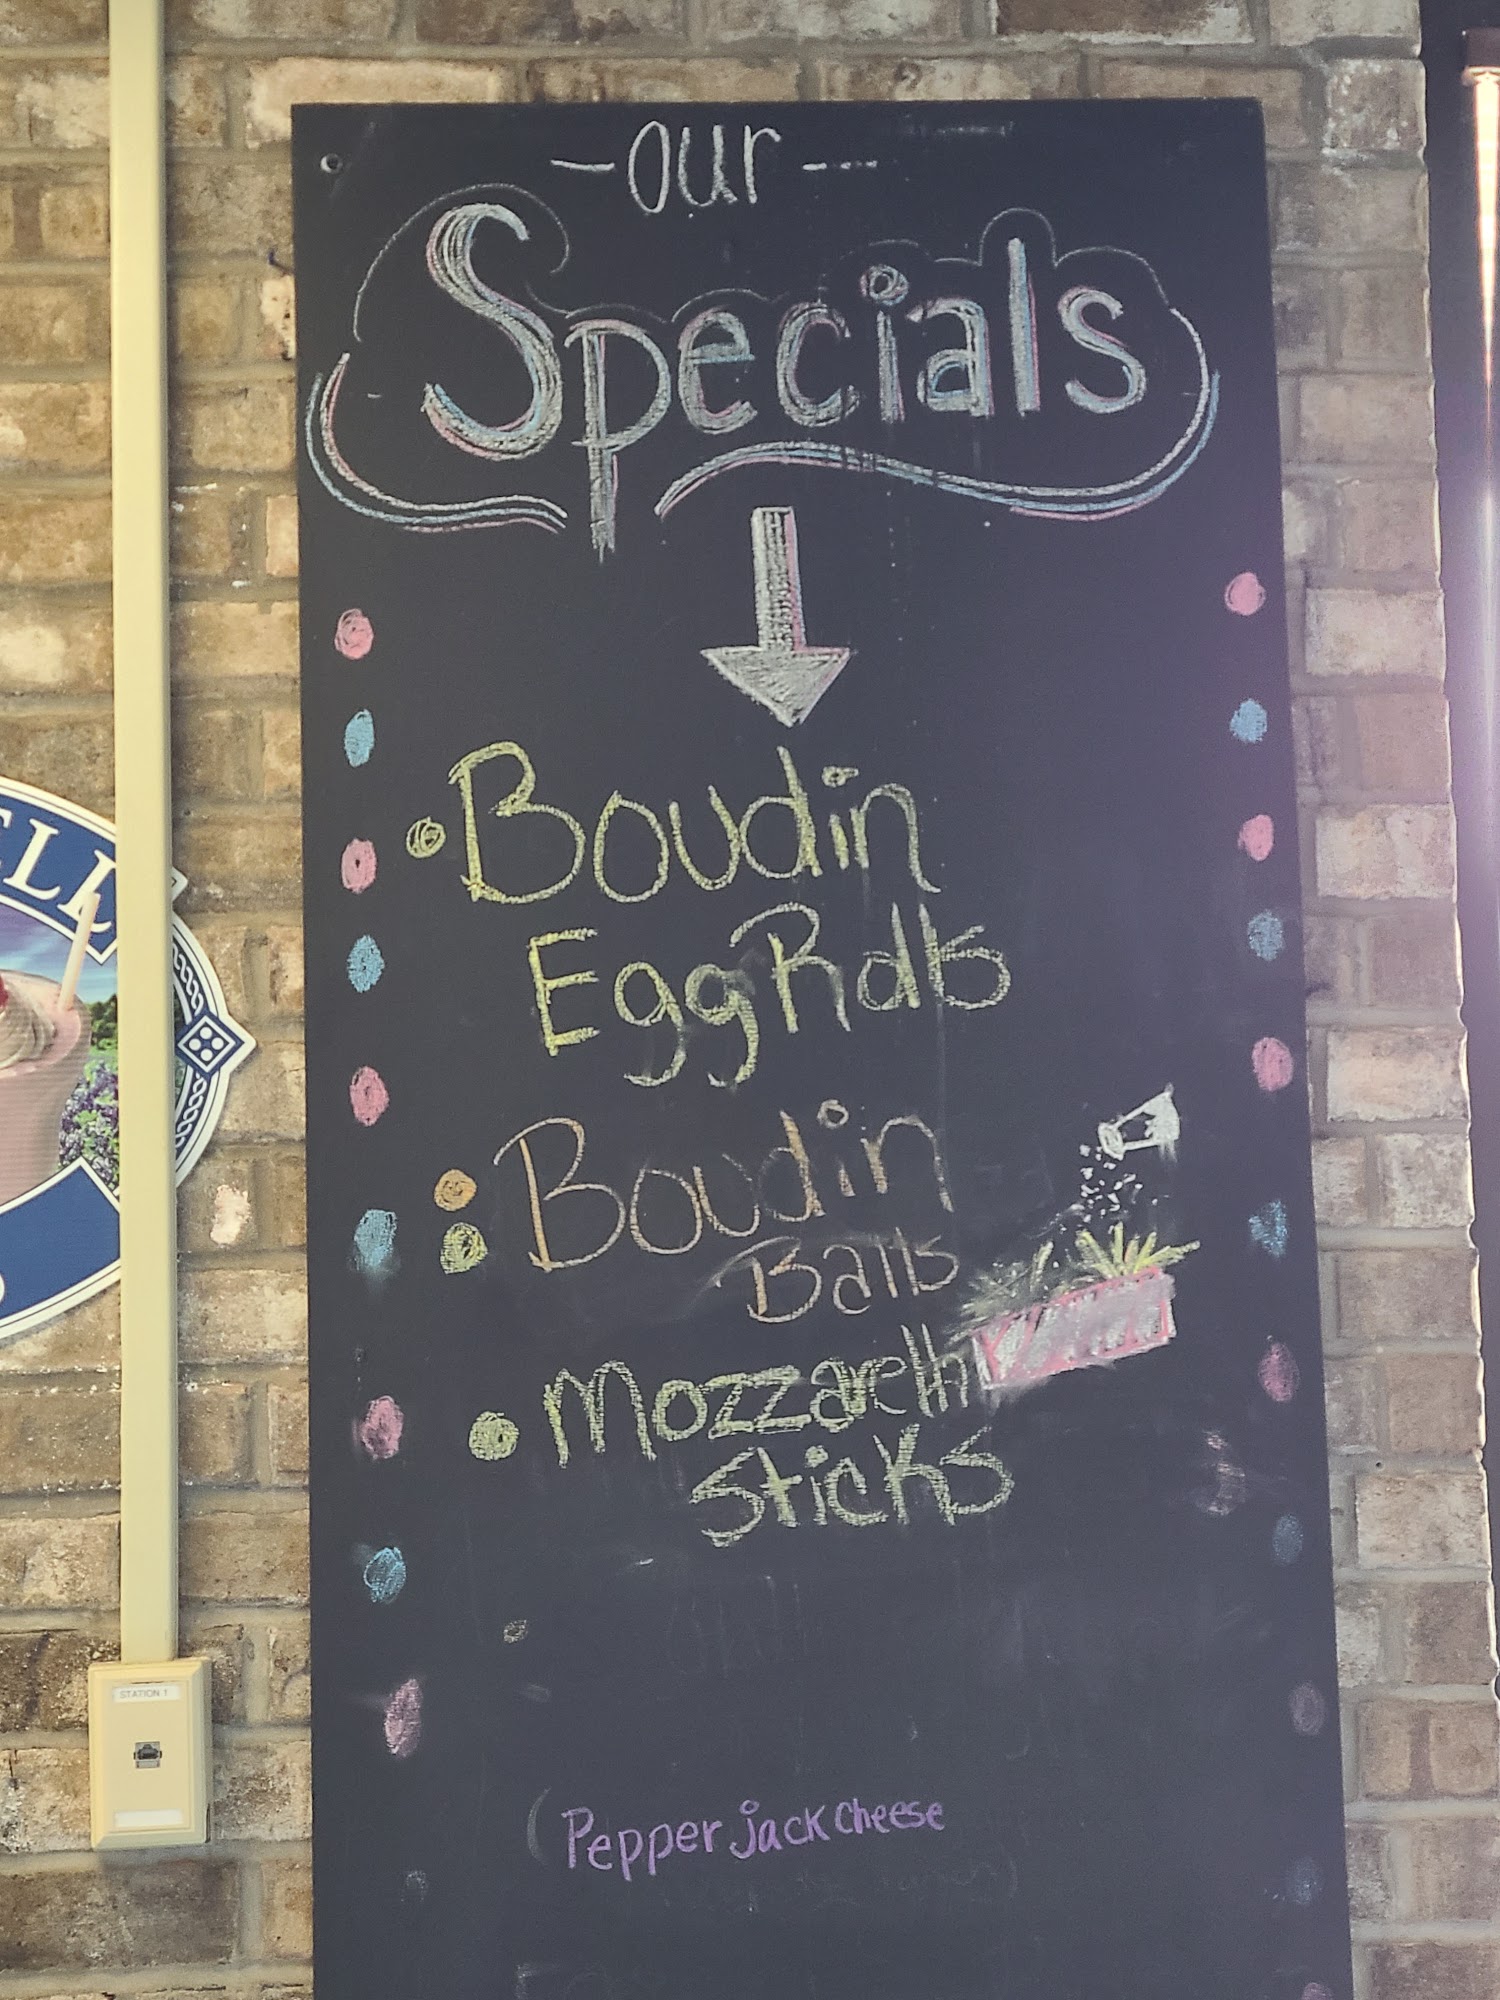 - our ---
Specials
Boudin
EggRolls
Boudin
Balls
Mozzarella
Sticks
Pepper jack cheese
STATION 1